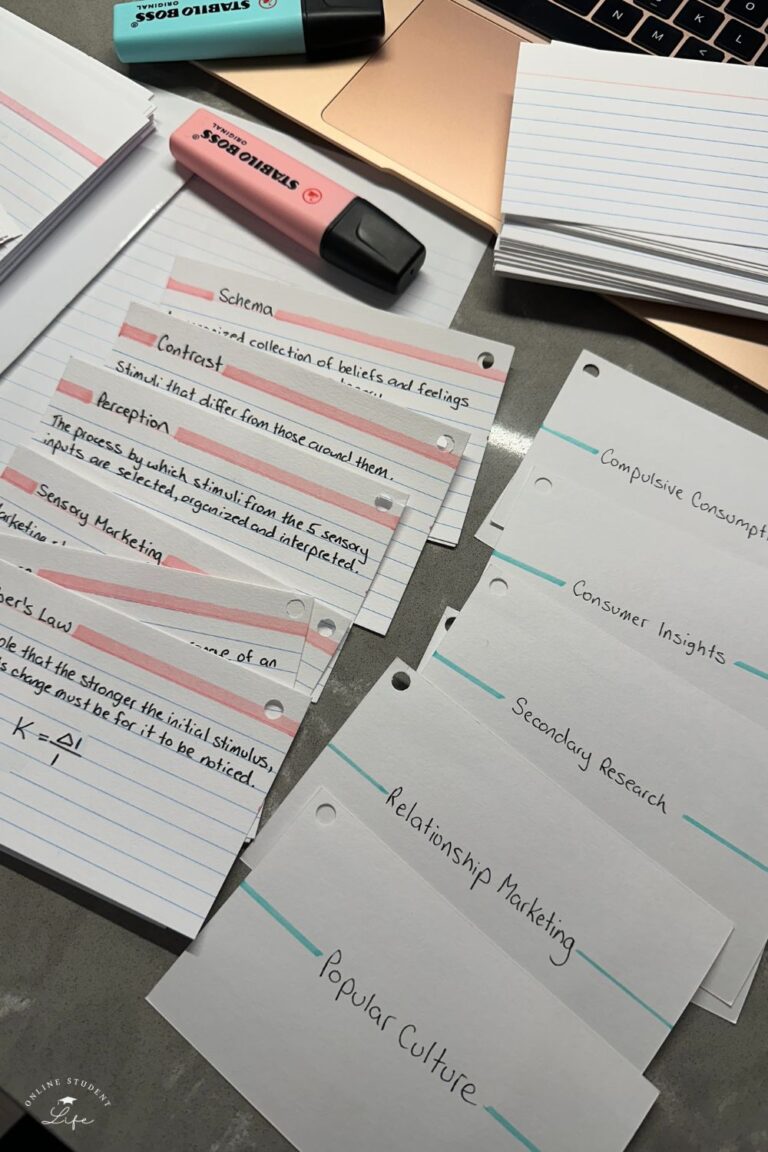 STABILO BOSS
ORIGINAL
STABILO BOSS
ORIGINAL
N
K
O
L
<
Schema
collection of beliefs and feelings
Contrast
Stimuli that differ from those around them.
Perception
The process by which stimuli from the 5 sensory
inputs are selected, organized and interpreted.
Sensory Marketing
of an
Law
that the stronger the initial stimulus,
change must be for it to be noticed.
K = ΔI
I
Compulsive
Consumer Insights
Secondary Research
Relationship Marketing
Popular Culture
ONLINE STUDENT
Life